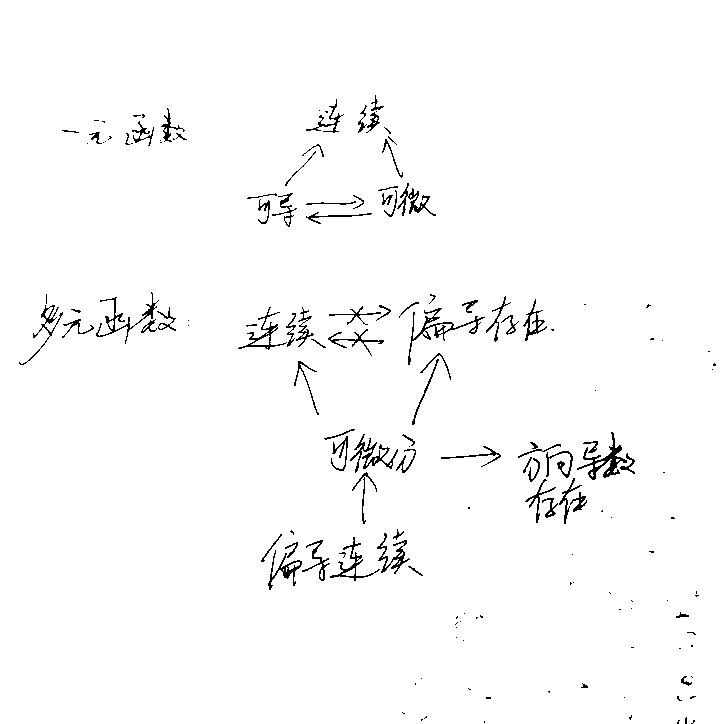 一元函数 连续
可导 可微
多元函数 连续 偏导存在
可微分 方向导数
存在
偏导连续